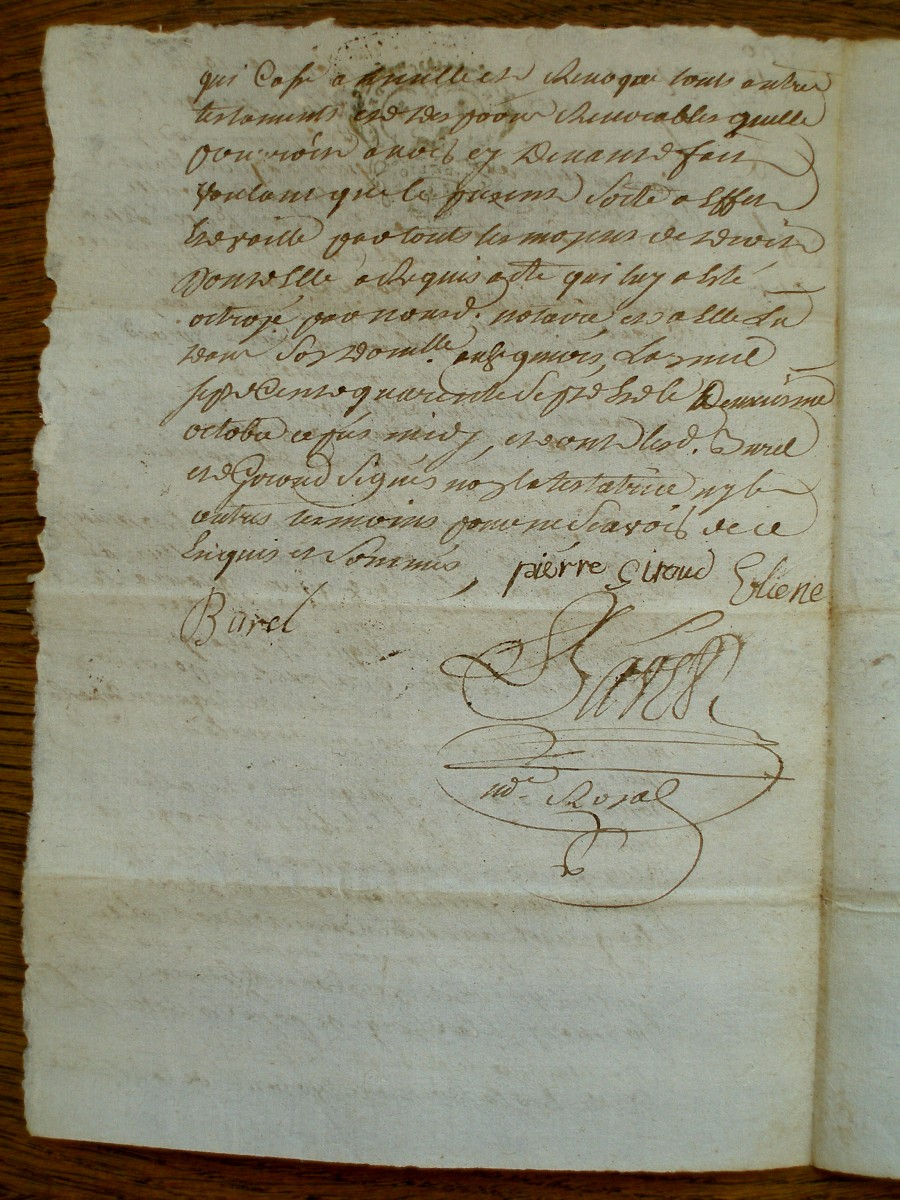 qui Casse annulle et Revoque touts autres
testaments et des pnõns Revocables quelle
pourroit avoir cy Devant fait
voulant que le present Sorte a Effet
et vaille par touts les moyens de droit
Dont Elle a Requis acte qui luy a Esté
octroyé par nousd. notaire et a Elle Lu
dans Son domille. Lan mil
sept Cents quarente Sept et le Deuxieme
octobre apres midy, et ont lesd. Burel
et Giroud Signés non la testatrice ny les
autres temoins pour ne Scavoir de ce
Enquis et Sommés,
pierre Giroud Etiene
Burel
nore Royal